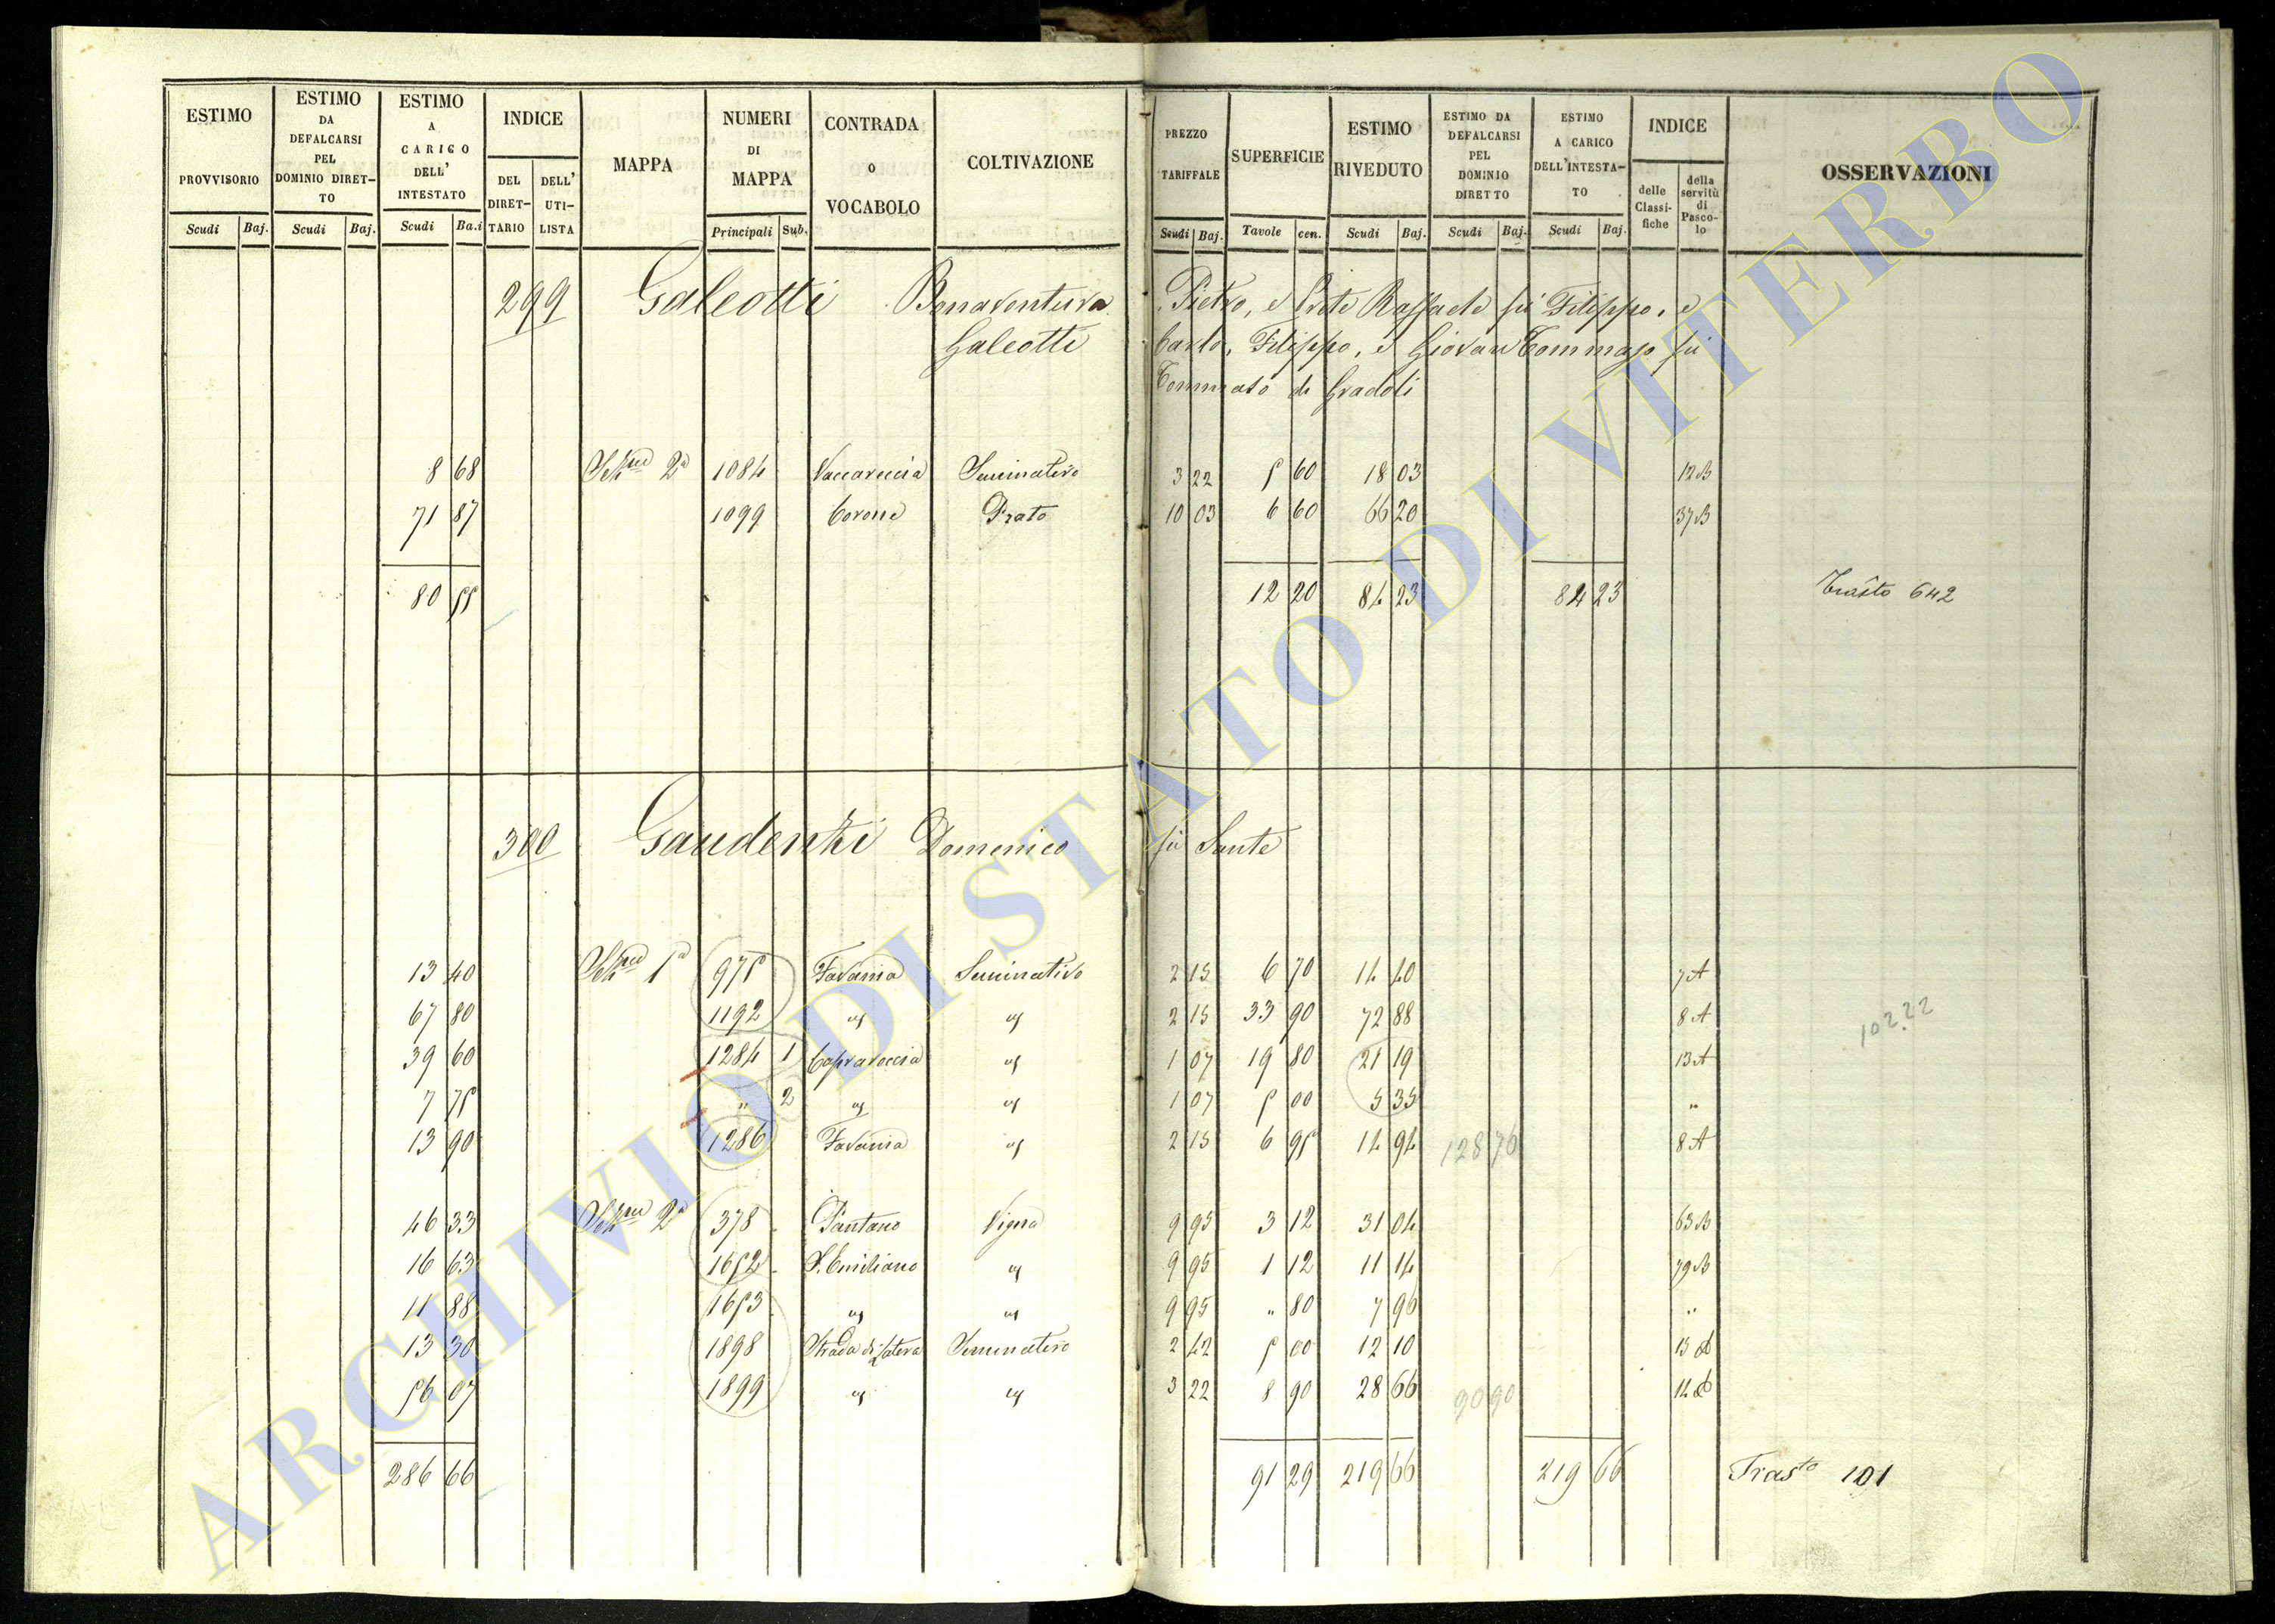 ESTIMO PROVVISORIO Scudi Baj.
ESTIMO DA DEFALCARSI PEL DOMINIO DIRET- TO Scudi Baj.
ESTIMO A CARICO DELL' INTESTATO Scudi Ba.i
INDICE DEL DIRET- TARIO DELL' UTI- LISTA
MAPPA
NUMERI DI MAPPA Principali Sub.
CONTRADA O VOCABOLO
COLTIVAZIONE
PREZZO TARIFFALE Scudi Baj.
SUPERFICIE Tavole cen.
ESTIMO RIVEDUTO Scudi Baj.
ESTIMO DA DEFALCARSI PEL DOMINIO DIRETTO Scudi Baj.
ESTIMO A CARICO DELL'INTESTA- TO Scudi Baj.
INDICE delle Classi- fiche della servitù di Pasco- lo
OSSERVAZIONI
299 Galeotti Bonaventura, Pietro, e Prete Raffaele fù Filippo, e
Galeotti Carlo, Filippo, e Giovan Tommaso fù
Tommaso di Gradoli
8 68 Sez.ne 2a 1084 Vaccareccia Seminativo 3 22 5 60 18 03 12 B
71 87 1099 Corone Prato 10 03 6 60 66 20 37 B
80 55 12 20 84 23 84 23 Trasto 642
300 Gaudenzi Domenico fù Sante
13 40 Sez.ne 1a 975 Favania Seminativo 2 15 6 70 14 40 7 A
67 80 1192 " " 2 15 33 90 72 88 8 A
102.22
39 60 1284 1 Capravoccia " 1 07 19 80 21 19 13 A
7 75 " 2 " " 1 07 5 00 5 35 "
13 90 1286 Favania " 2 15 6 95 14 94 128 76 8 A
46 33 Sez.ne 2a 378 Pantano Vigna 9 95 3 12 31 04 63 B
16 63 1652 S. Emiliano " 9 95 1 12 11 14 79 B
11 88 1653 " " 9 95 " 80 7 96 "
13 30 1898 Strada di Latera Seminativo 2 42 5 00 12 10 13 B
56 07 1899 " " 3 22 8 90 28 66 90 90 12 B
286 66 91 29 219 66 219 66 Trasto 101
ARCHIVIO DI STATO DI VITERBO